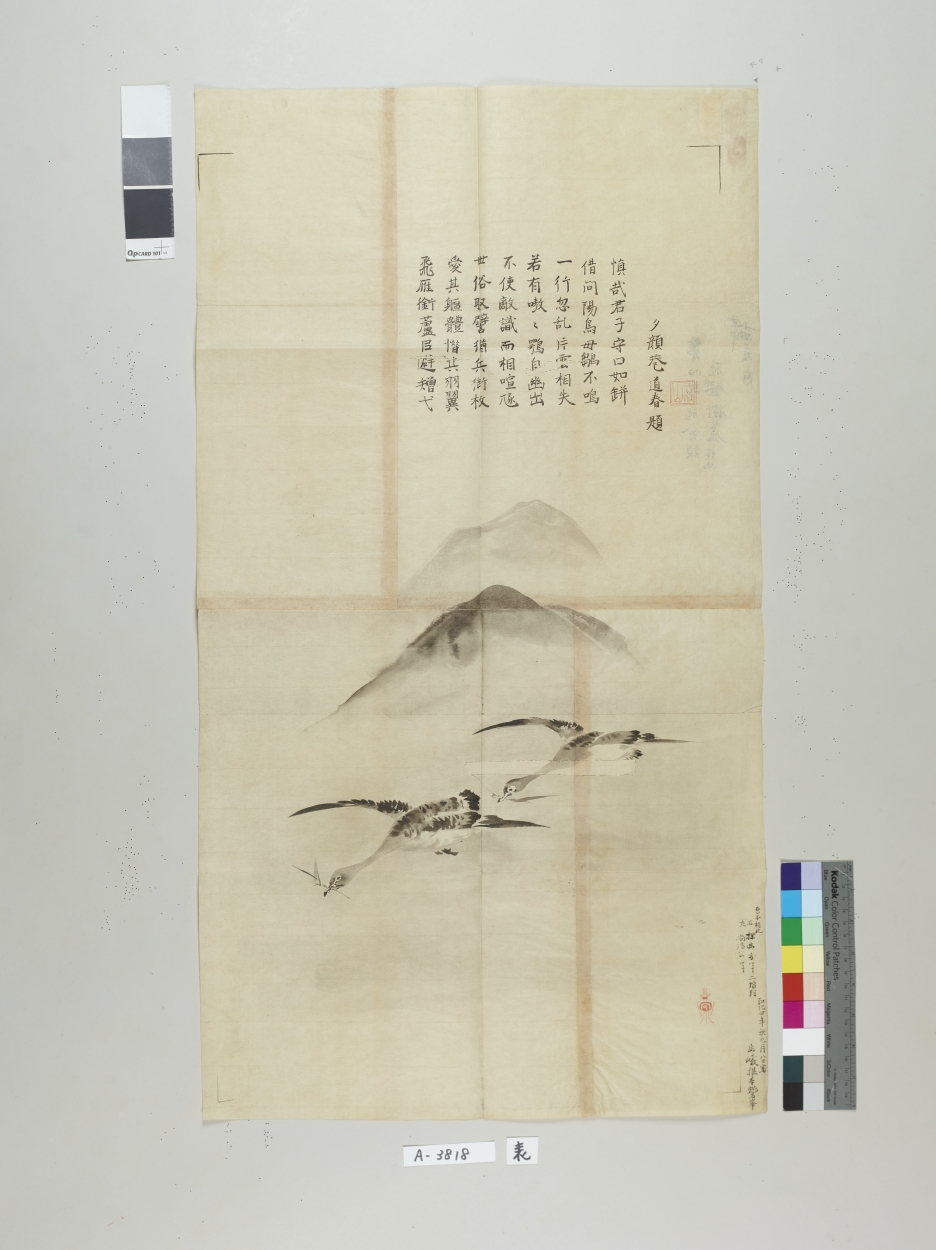 飛雁銜蘆避矰弋
愛其軀體惜其羽翼
世俗取譬猶兵銜枚
不使敵識而相喧豗
若有嗷〻鶚自幽出
一行忽乱片雲相失
借問陽鳥毋鶵不鳴
慎哉君子守口如缾
夕顔巷道春題
QPCARD 101
Kodak Color Control Patches
Blue
Cyan
Green
Yellow
Red
Magenta
White
3/Color
Black
A-3818
表